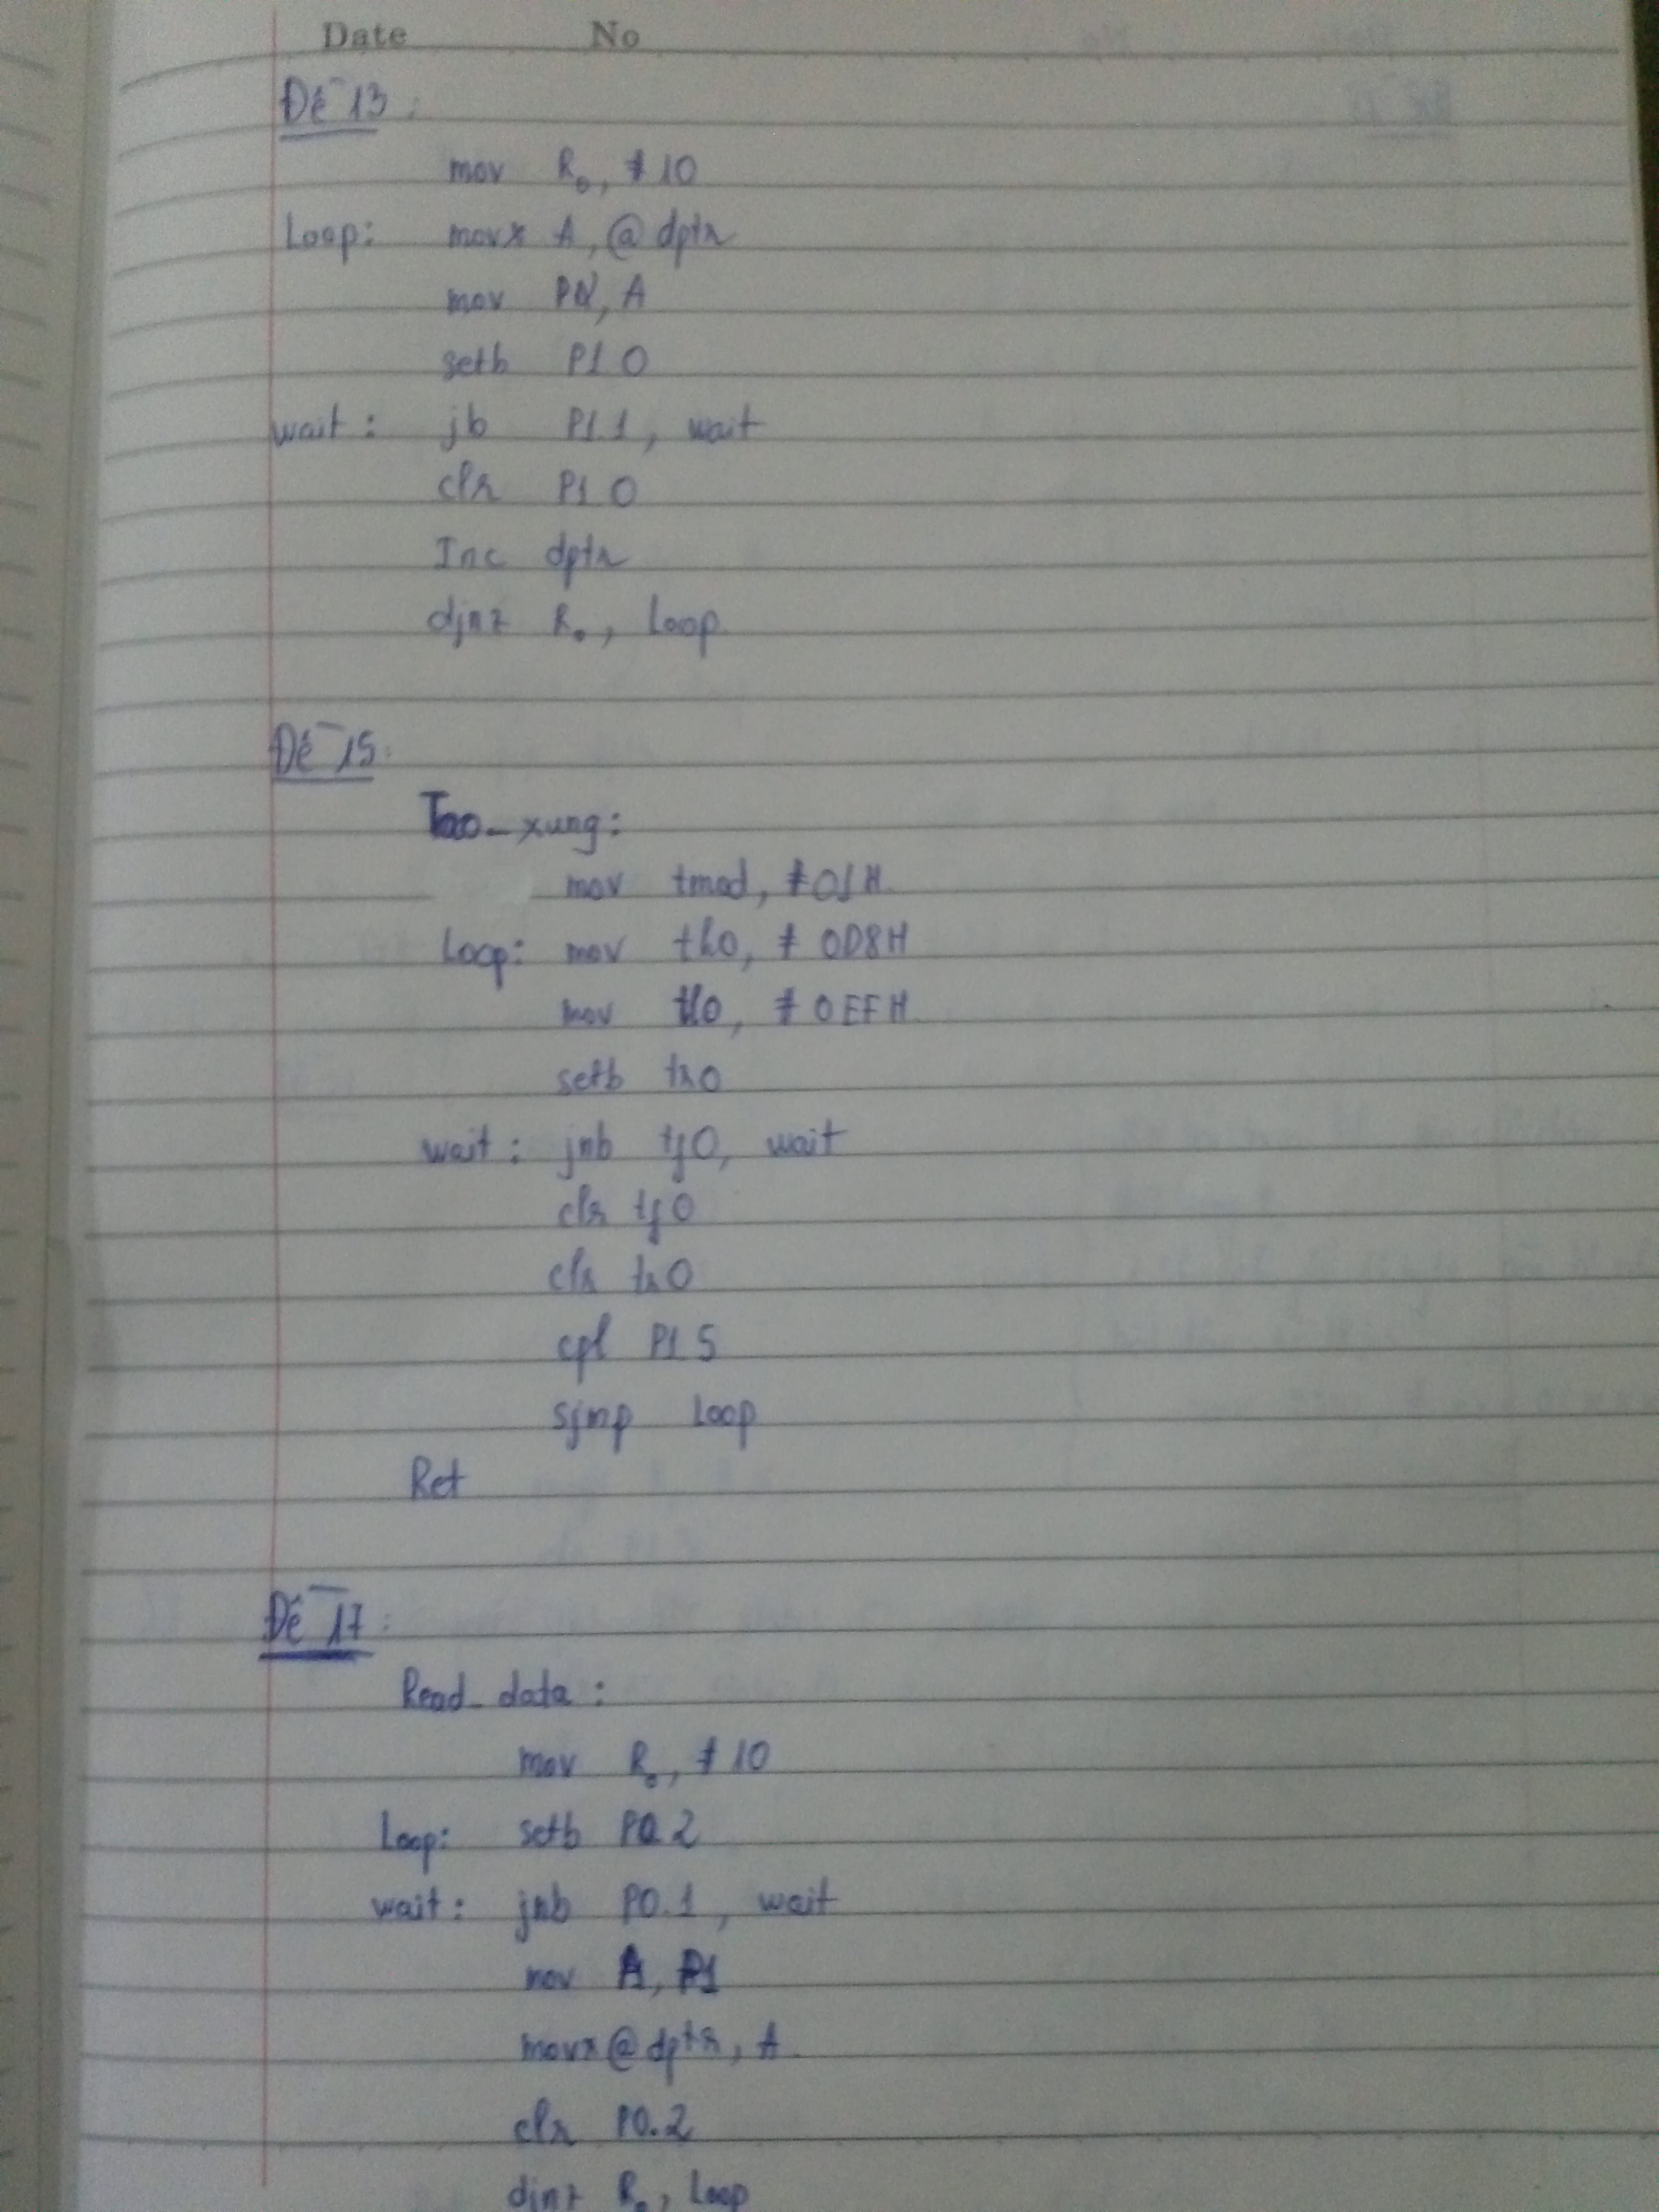 Date No
Đề 13:
mov R₀, #10
Loop: movx A, @dptr
mov , A
setb P1.0
wait: jb P1.1, wait
clr P1.0
Inc dptr
djnz R₀, Loop
Đề 15:
Tao_xung:
mov tmod, #01H
Loop: mov th0, #0D8H
mov tl0, #0EFH
setb tr0
wait: jnb tf0, wait
clr tf0
clr tr0
cpl P1.5
sjmp Loop
Ret
Đề 17:
Read_data:
mov R₀, #10
Loop: setb P0.2
wait: jnb P0.1, wait
mov A, P1
movx @dptr, A
clr P0.2
djnz R₀, Loop